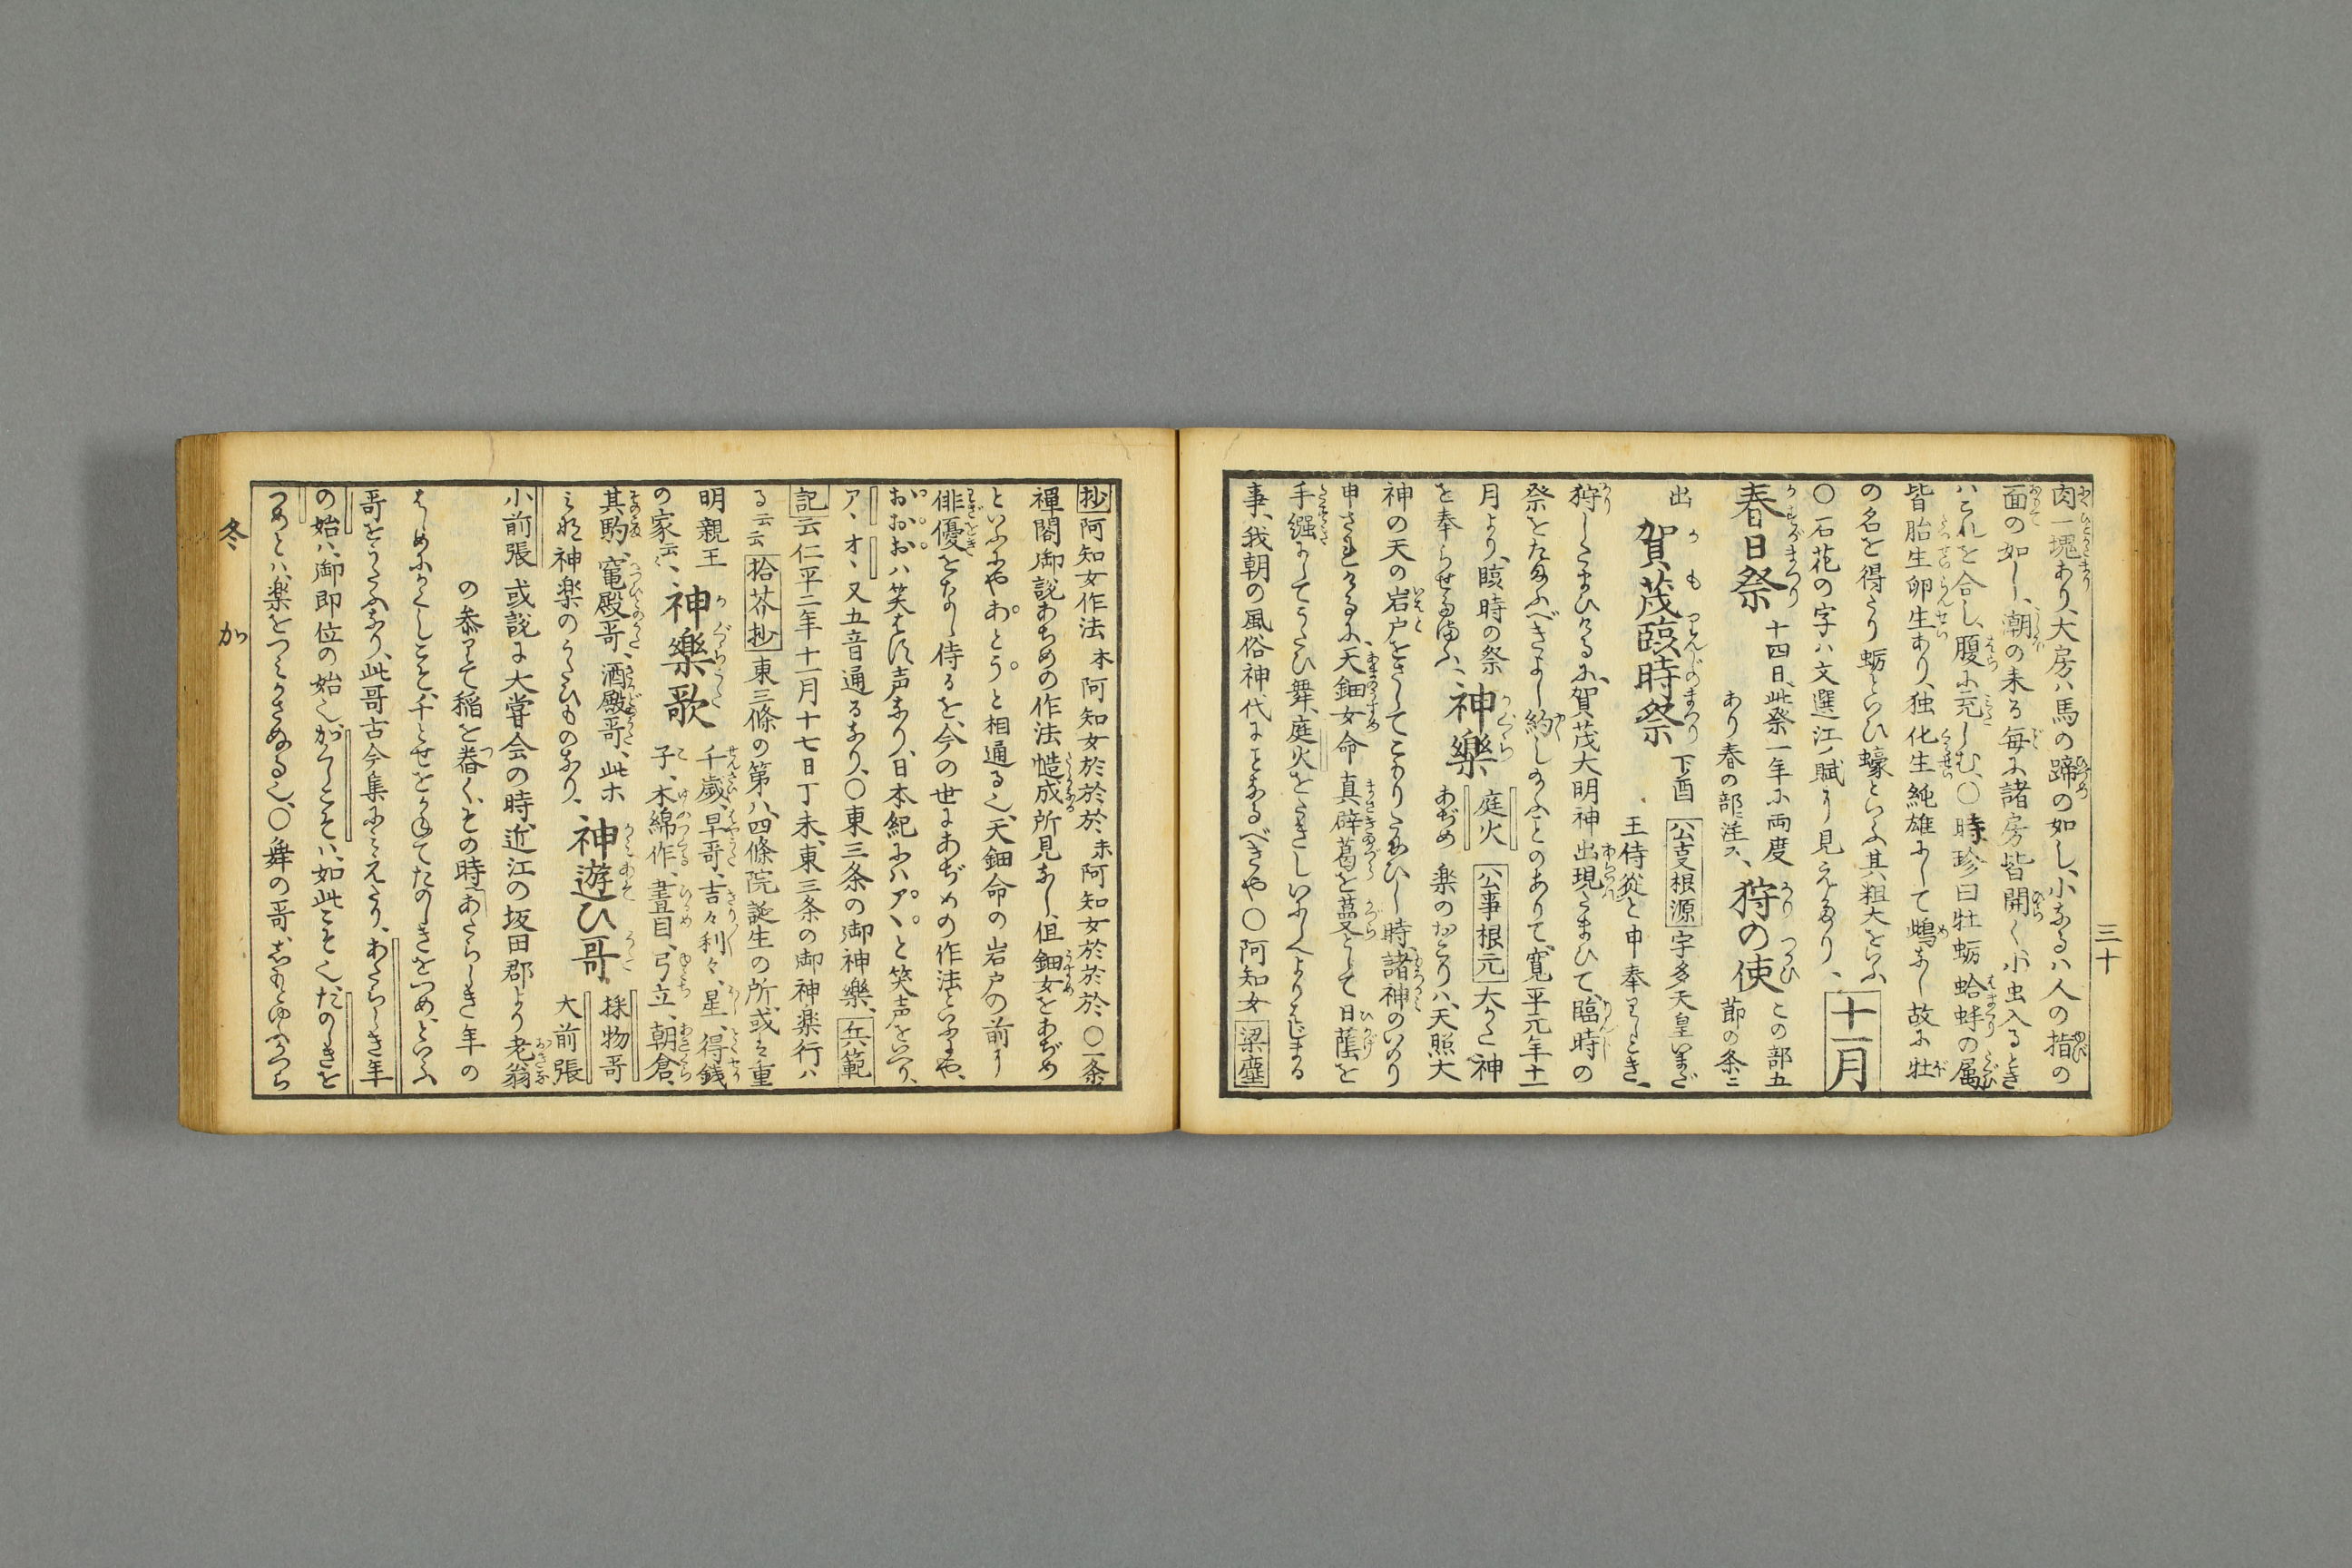 三十
肉一塊あり、大房ハ馬の蹄の如し、小なるハ人の指の
面の如し、潮の来る毎に諸房皆開く小虫入るとき
ハこれを合し、腹に充しむ、〇時珍曰牡蛎蛤蚌の属
皆胎生卵生あり、独化生純雄にして鴫なし故に牡
の名を得たり蛎といひ蠔といふ其粗大をいふ
〇石花の字ハ文選江ノ賦に見えたり、十一月
春日祭 十四日、此祭一年に両度
あり春の部ニ注ス、狩の使 この部五
節の条ニ
出 賀茂臨時祭 下酉 公事根源 宇多天皇いまだ
王侍従と申奉りしとき、
狩したまひけるに、賀茂大明神出現したまひて、臨時の
祭をたまふべきよし約しのふことのありて、寛平元年十一
月より、臨時の祭
を奉らせたまふ、神樂 庭火 公事根元 大かた神
あぢめ 楽のおこりハ、天照大
神の天の岩戸をさしてこもりたまひし時、諸神のいのり
申されけるに、天鈿女命真辟葛を蘰として日蔭を
手繦にしてうたひ舞、庭火をたきしいにしへよりはじまる
事、我朝の風俗神代にことなるべきや〇阿知女 梁塵
抄 阿知女作法 本阿知女於於於、末阿知女於於於〇一条
禅閤御説あちめの作法慥成所見なし、但鈿女をあぢめ
といふにやあとうと相通る也、天鈿命の岩戸の前に
俳優をなし侍るを、今の世にあぢめの作法といふにや、
おおおハ笑ふ声なり、日本紀にハアヽと笑声をいへり、
アヽオヽ又五音通るなり、〇東三条の御神樂、兵範
記 云仁平二年十一月十七日丁未、東三条の御神楽行ハ
る云云 拾芥抄 東三條の第ハ、四條院誕生の所、或ハ重
明親王
の家云〻、神樂歌 千歳、早哥、吉々利々、星、得銭
子、木綿作、晝目、弓立、朝倉、
其駒、竃殿哥、酒殿哥、此ホ
ミな神楽のうたひものなり、神遊ひ哥 採物哥
大前張
小前張 或説に大嘗会の時、近江の坂田郡より老翁
の参りて稲を舂く、その時、あたらしき年の
はじめにかくしこそ、千とせをかねてたのしきをつめ、といふ
哥をうたふなり、此哥古今集にミえたり、あたらしき年
の始ハ、御即位の始也、かくしこそハ、如此こそ也、たのしきを
つめとハ、楽をつミかさぬる也、〇舞の哥、しもとゆふかつら
冬 加